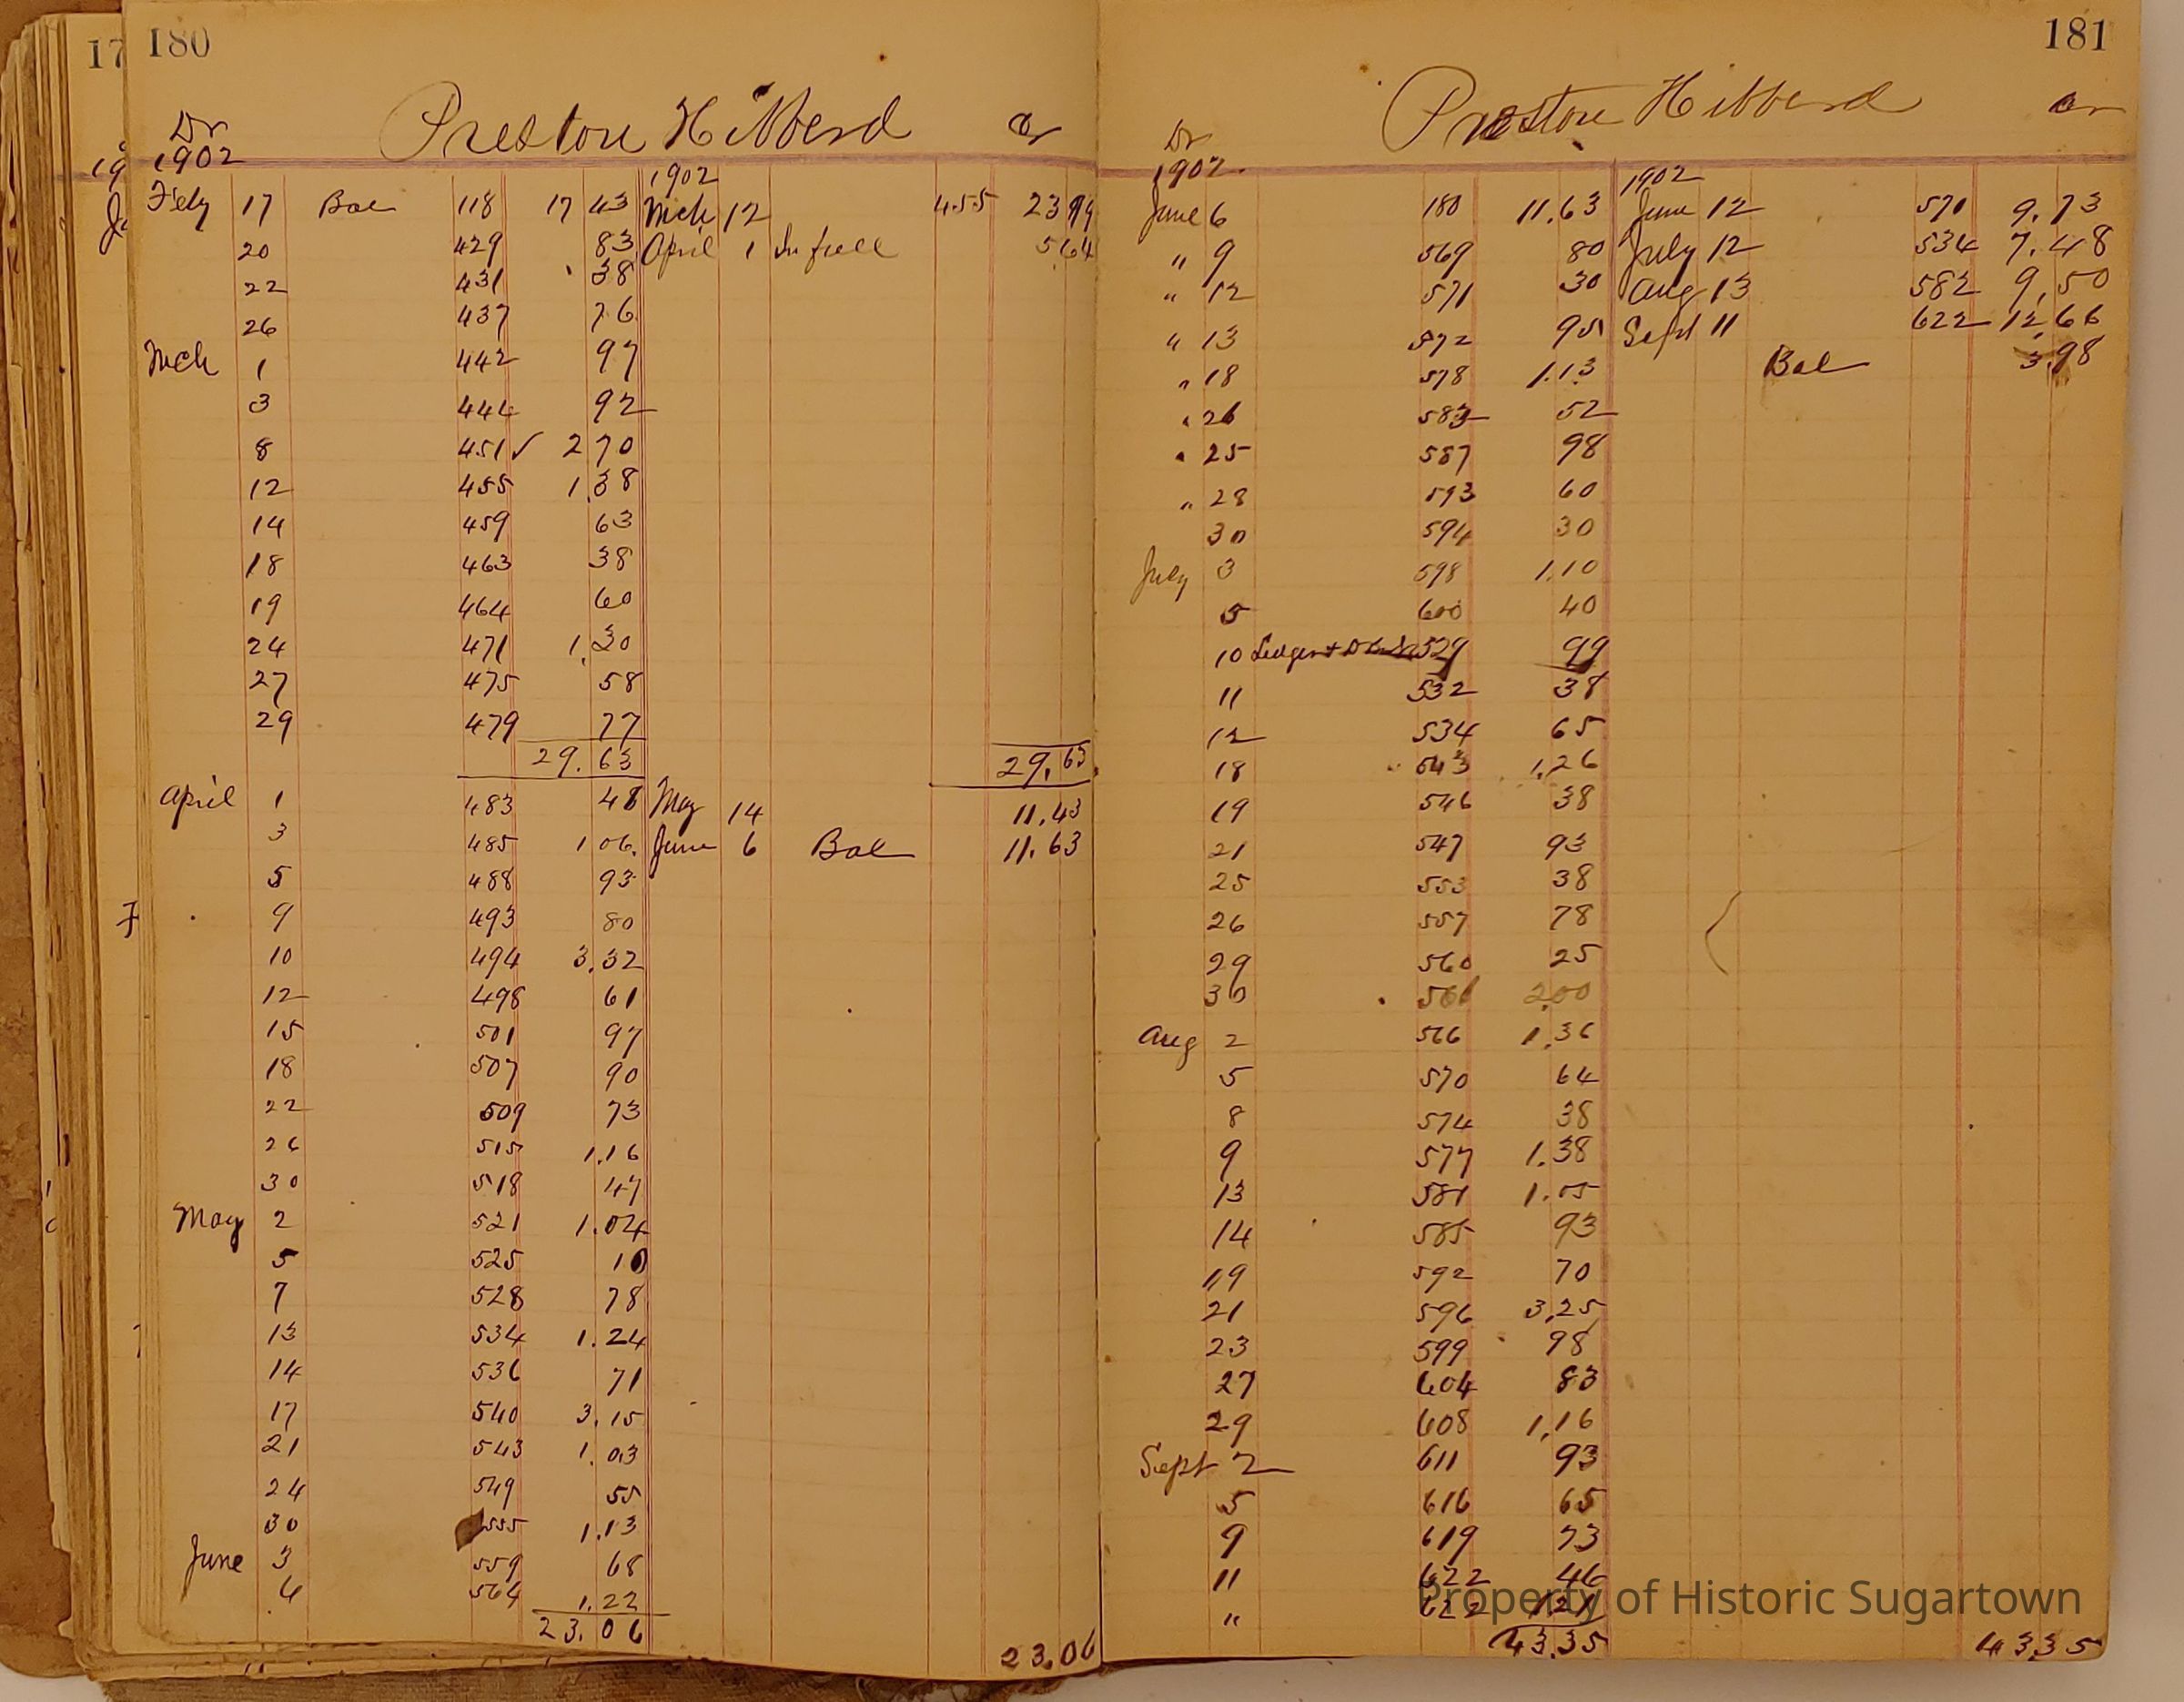 17
180
Dr Preston Hibberd Cr
1902
1902
Feby 17 Bal 118 17 43 Mch 12 455 23 99
20 429 83 April 1 In full 5 64
22 431 38
26 437 76
Mch 1 442 97
3 444 92
8 451 ✓ 2 70
12 455 1.38
14 459 63
18 463 38
19 464 60
24 471 1.30
27 475 58
29 479 77
29.63 29.63
April 1 483 48 May 14 11.43
3 485 1 06. June 6 Bal 11.63
5 488 93
9 493 80
10 494 3.32
12 498 61
15 501 97
18 507 90
22 509 73
26 515 1.16
30 518 47
May 2 521 1.04
5 525 10
7 528 78
13 534 1.24
14 536 71
17 540 3.15
21 543 1.03
24 549 55
30 555 1.13
June 3 559 68
4 564 1.22
23.06 23.06
181
Dr Preston Hibberd Cr
1902
1902
June 6 180 11.63 June 12 571 9.73
" 9 569 80 July 12 534 7.48
" 12 571 30 Aug 13 582 9.50
" 13 572 95 Sept 11 622 12.66
" 18 578 1.13 Bal 3.98
" 26 583 52
" 25 587 98
" 28 593 60
30 594 30
July 3 598 1.10
5 600 40
10 Ledger + 529 99
11 532 38
12 534 65
18 543 1.26
19 546 38
21 547 93
25 553 38
26 557 78
29 560 25
30 561 2.00
Aug 2 566 1.36
5 570 64
8 574 38
9 577 1.38
13 581 1.05
14 585 93
19 592 70
21 596 3.25
23 599 98
27 604 83
29 608 1.16
Sept 2 611 93
5 616 65
9 619 73
11 622 46
" 622 1.21
43.35 43.35
Property of Historic Sugartown